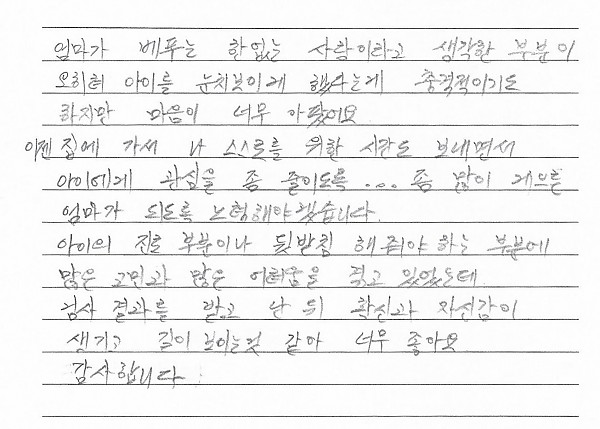 엄마가 베푸는 한없는 사랑이라고 생각한 부분이
오히려 아이를 눈치보이게 했다는게 충격적이기도
하지만 마음이 너무 아팠어요
이젠 집에 가서 나 스스로를 위한 시간도 보내면서
아이에게 관심을 좀 줄이도록... 좀 많이 게으른
엄마가 되도록 노력해야겠습니다.
아이의 진로 부분이나 뒷받침 해줘야 하는 부분에
많은 고민과 많은 어려움을 겪고 있었는데
검사 결과를 받고 난 뒤 확신과 자신감이
생기고 길이 보이는것 같아 너무 좋아요
감사합니다